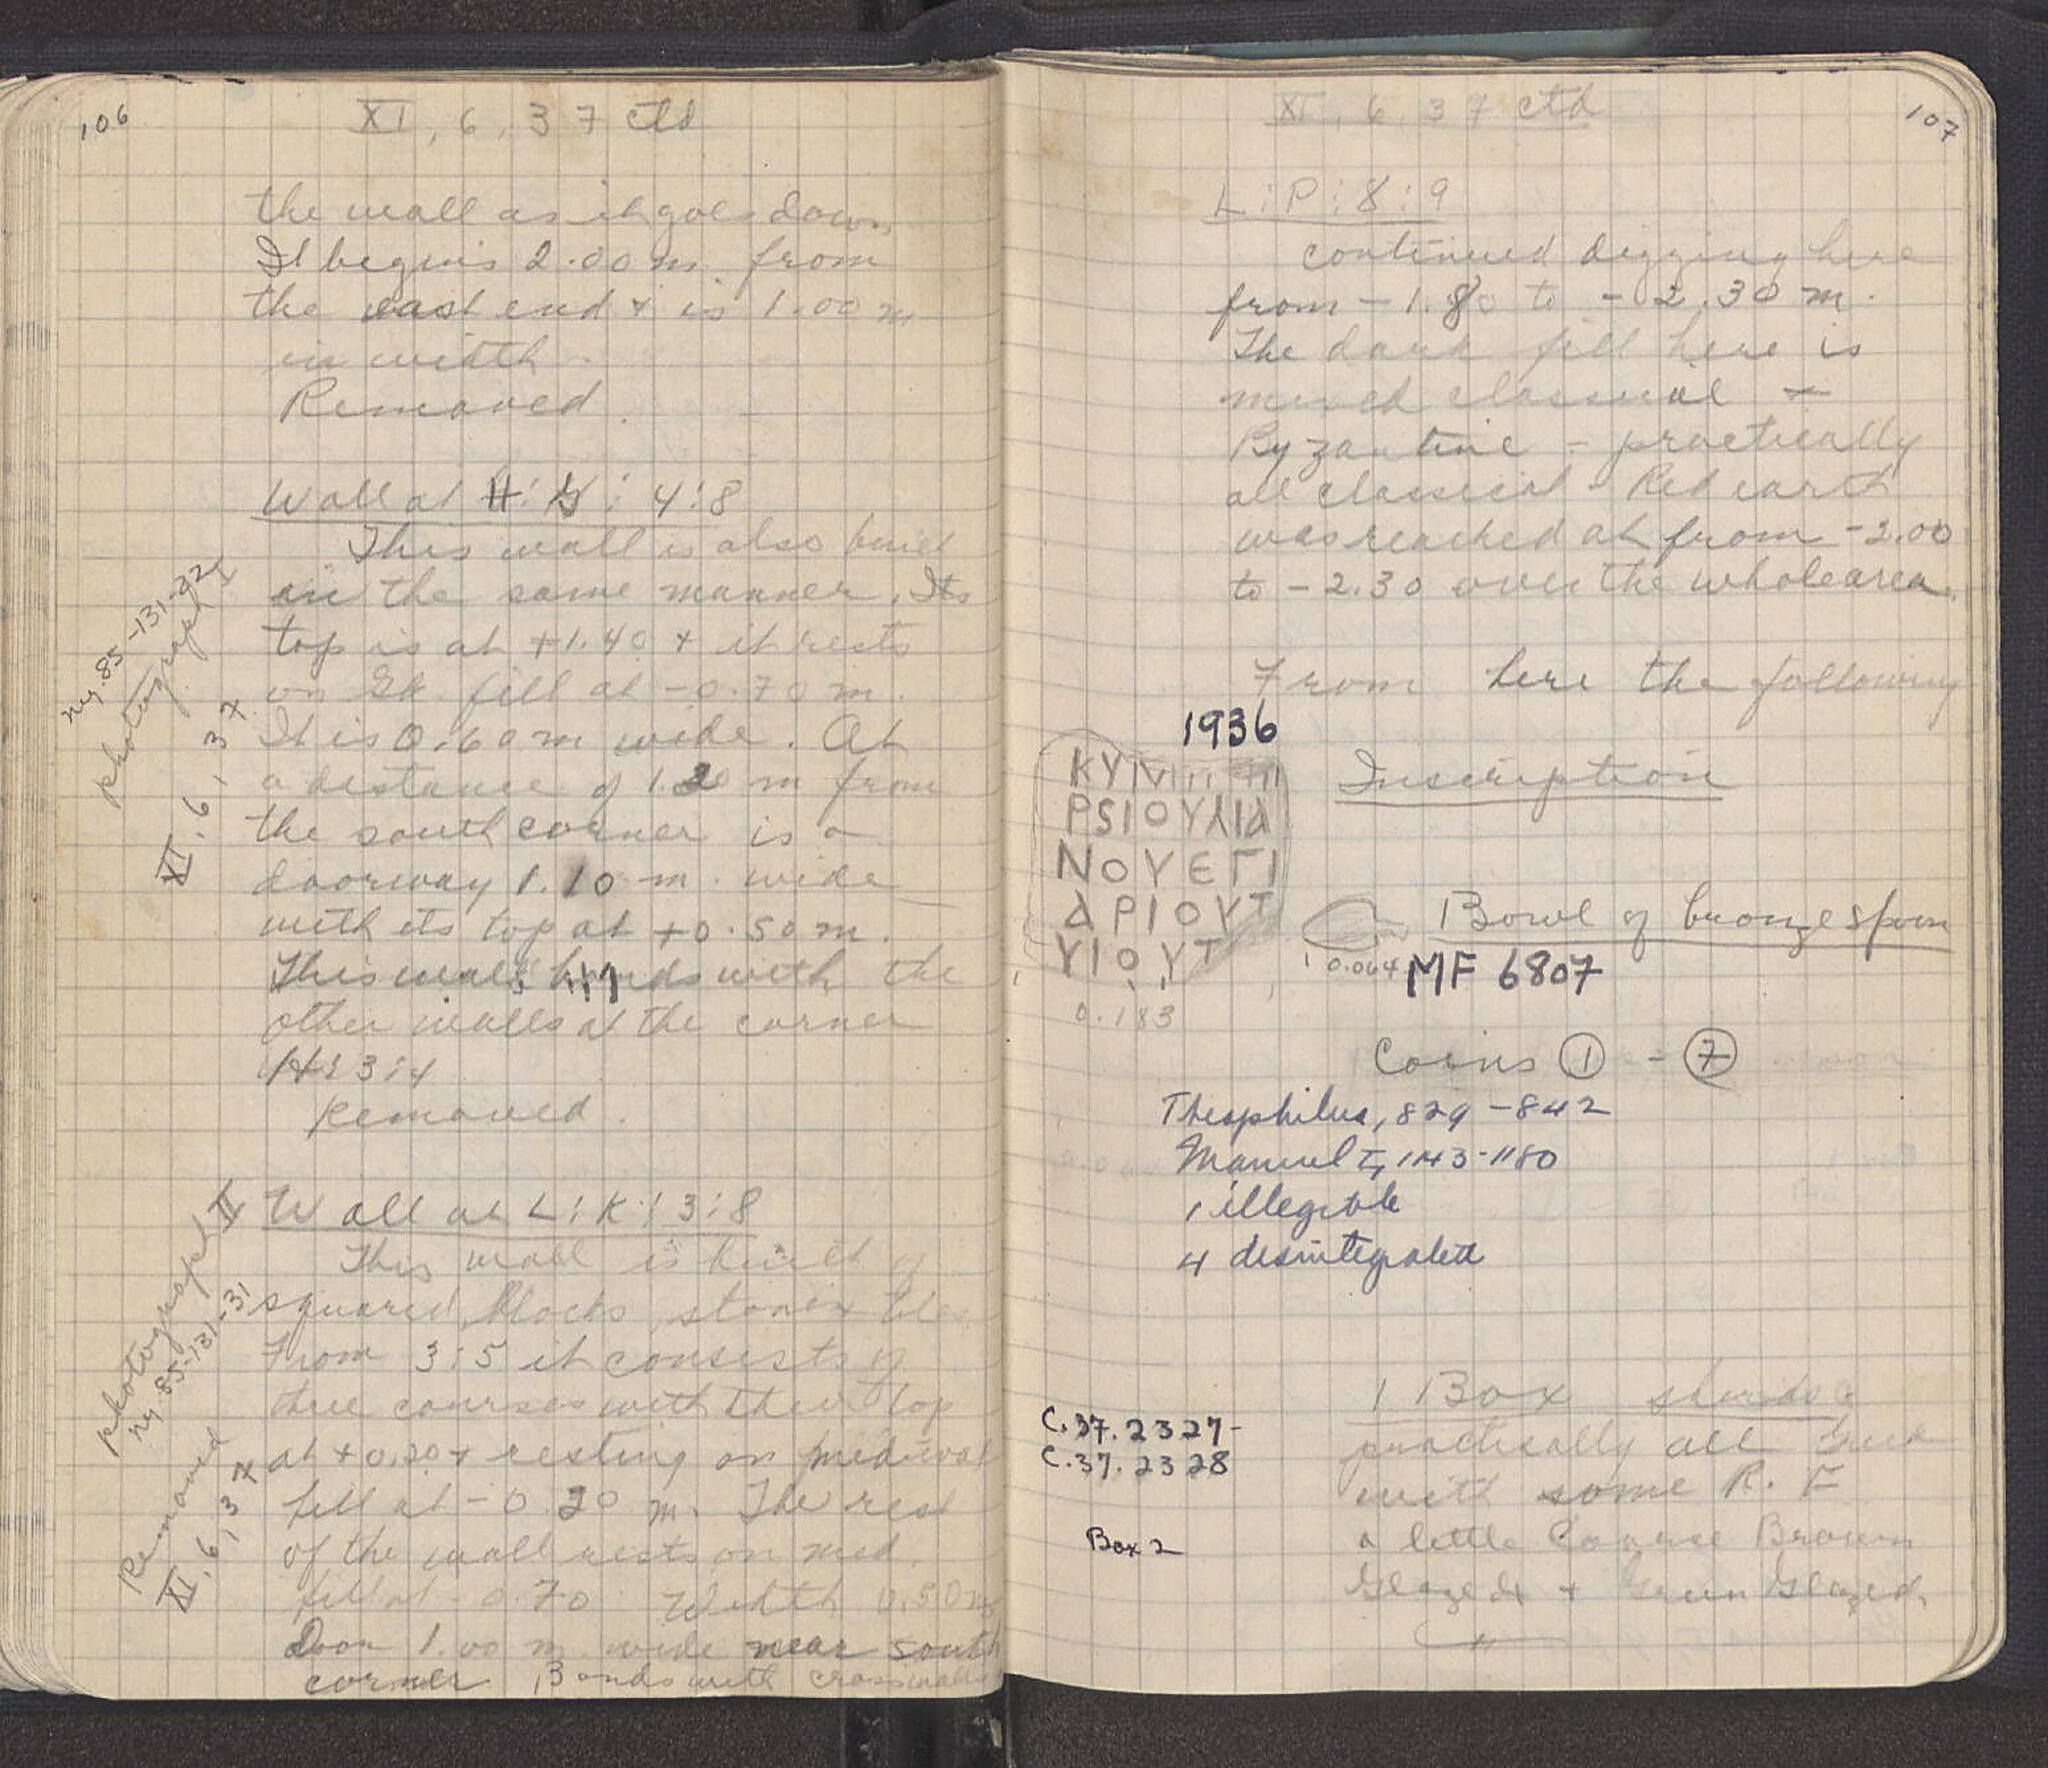 106
XI, 6, 37 ctd
the wall as it goes down
It begins 2.00 m. from
the east end + is 1.00 m
in width.
Removed.
Wall at H: : 4:8
This wall is also built
in the same manner. Its
top is at +1.40 + it rests
on Gk. fill at -0.70 m.
It is 0.60 m wide. At
a distance of 1.20 m from
the south corner is a
doorway 1.10 m. wide
with its top at +0.50 m.
This wall bonds with the
other walls at the corner
H:3:4
Removed.
ny. 85-131-32
photograph I
XI, 6, 37
Wall at L:K:3:8
This wall is built of
squared blocks, stones + tiles
From 3:5 it consists of
three courses with their top
at +0.20 + resting on medieval
fill at -0.20 m. The rest
of the wall rests on med.
fill at -0.70 Width 0.50 m
Door 1.00 m wide near south
corner Bonds with crosswalls
Photograph II
ny. 85-131-31
Removed
XI, 6, 37
107
XI, 6, 37 ctd
L:P:8:9
continued digging here
from -1.80 to -2.30 m.
The dark fill here is
mixed classical +
Byzantine - practically
all classical - Red earth
was reached at from -2.00
to -2.30 over the whole area.
From here the following
1936
Inscription
ΚΥ
ΡSΙΟΥΛΙΑ
ΝΟΥΕΓΙ
ΔΡΙΟΥΤ
ΥΙΟΥΤ
0.183
Bowl of bronze spoon
0.064
MF 6807
Coins ① - ⑦
Theophilus, 829-842
Manuel I, 1143-1180
1 illegible
4 disintegrated
1 Box sherds
practically all Greek
with some R. F
a little Coarse Brown
Glazed + Green Glazed.
C.37.2327-
C.37.2328
Box 2